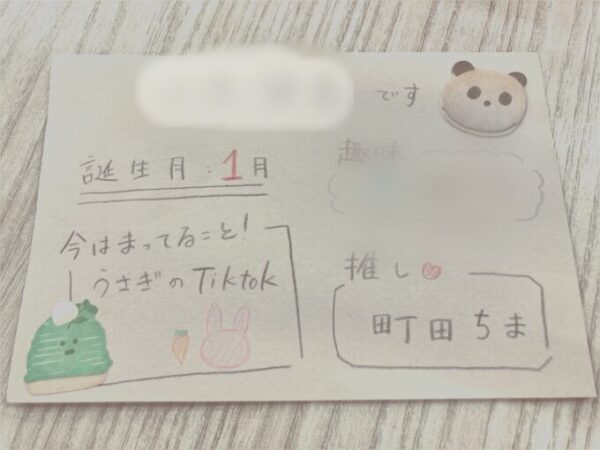 です
誕生月：1月
趣味
今はまってること！
うさぎのTiktok
推し
町田ちま